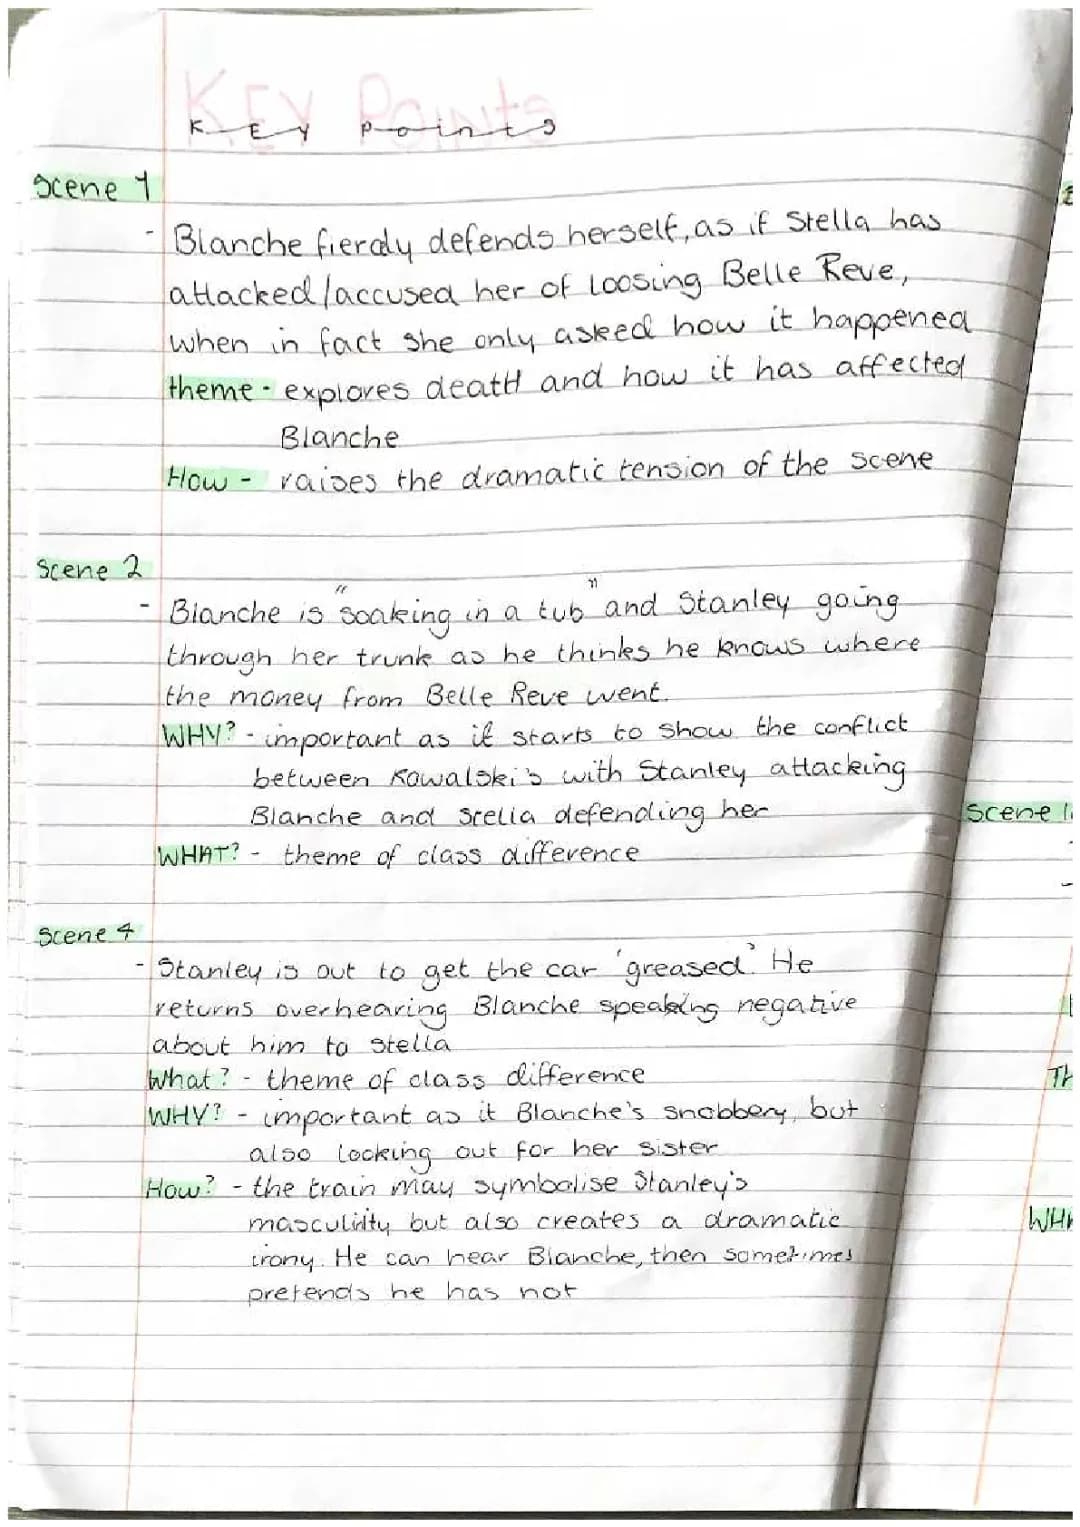 KEY Points
KEY points
Scene 1
- Blanche fiercly defends herself, as if Stella has
attacked/accused her of loosing Belle Reve,
when in fact she only asked how it happened
theme - explores death and how it has affected
Blanche
How - raises the dramatic tension of the scene
Scene 2
- Blanche is "soaking in a tub" and Stanley going
through her trunk as he thinks he knows where
the money from Belle Reve went.
WHY? - important as it starts to show the conflict
between Kowalski's with Stanley attacking
Blanche and Stella defending her
WHAT? - theme of class difference
Scene 4
- Stanley is out to get the car 'greased'. He
returns overhearing Blanche speaking negative
about him to Stella
What? - theme of class difference
WHY? - important as it Blanche's snobbery, but
also looking out for her sister
How? - the train may symbolise Stanley's
masculinity but also creates a dramatic
irony. He can hear Blanche, then sometimes
pretends he has not
Scene
Th
WH